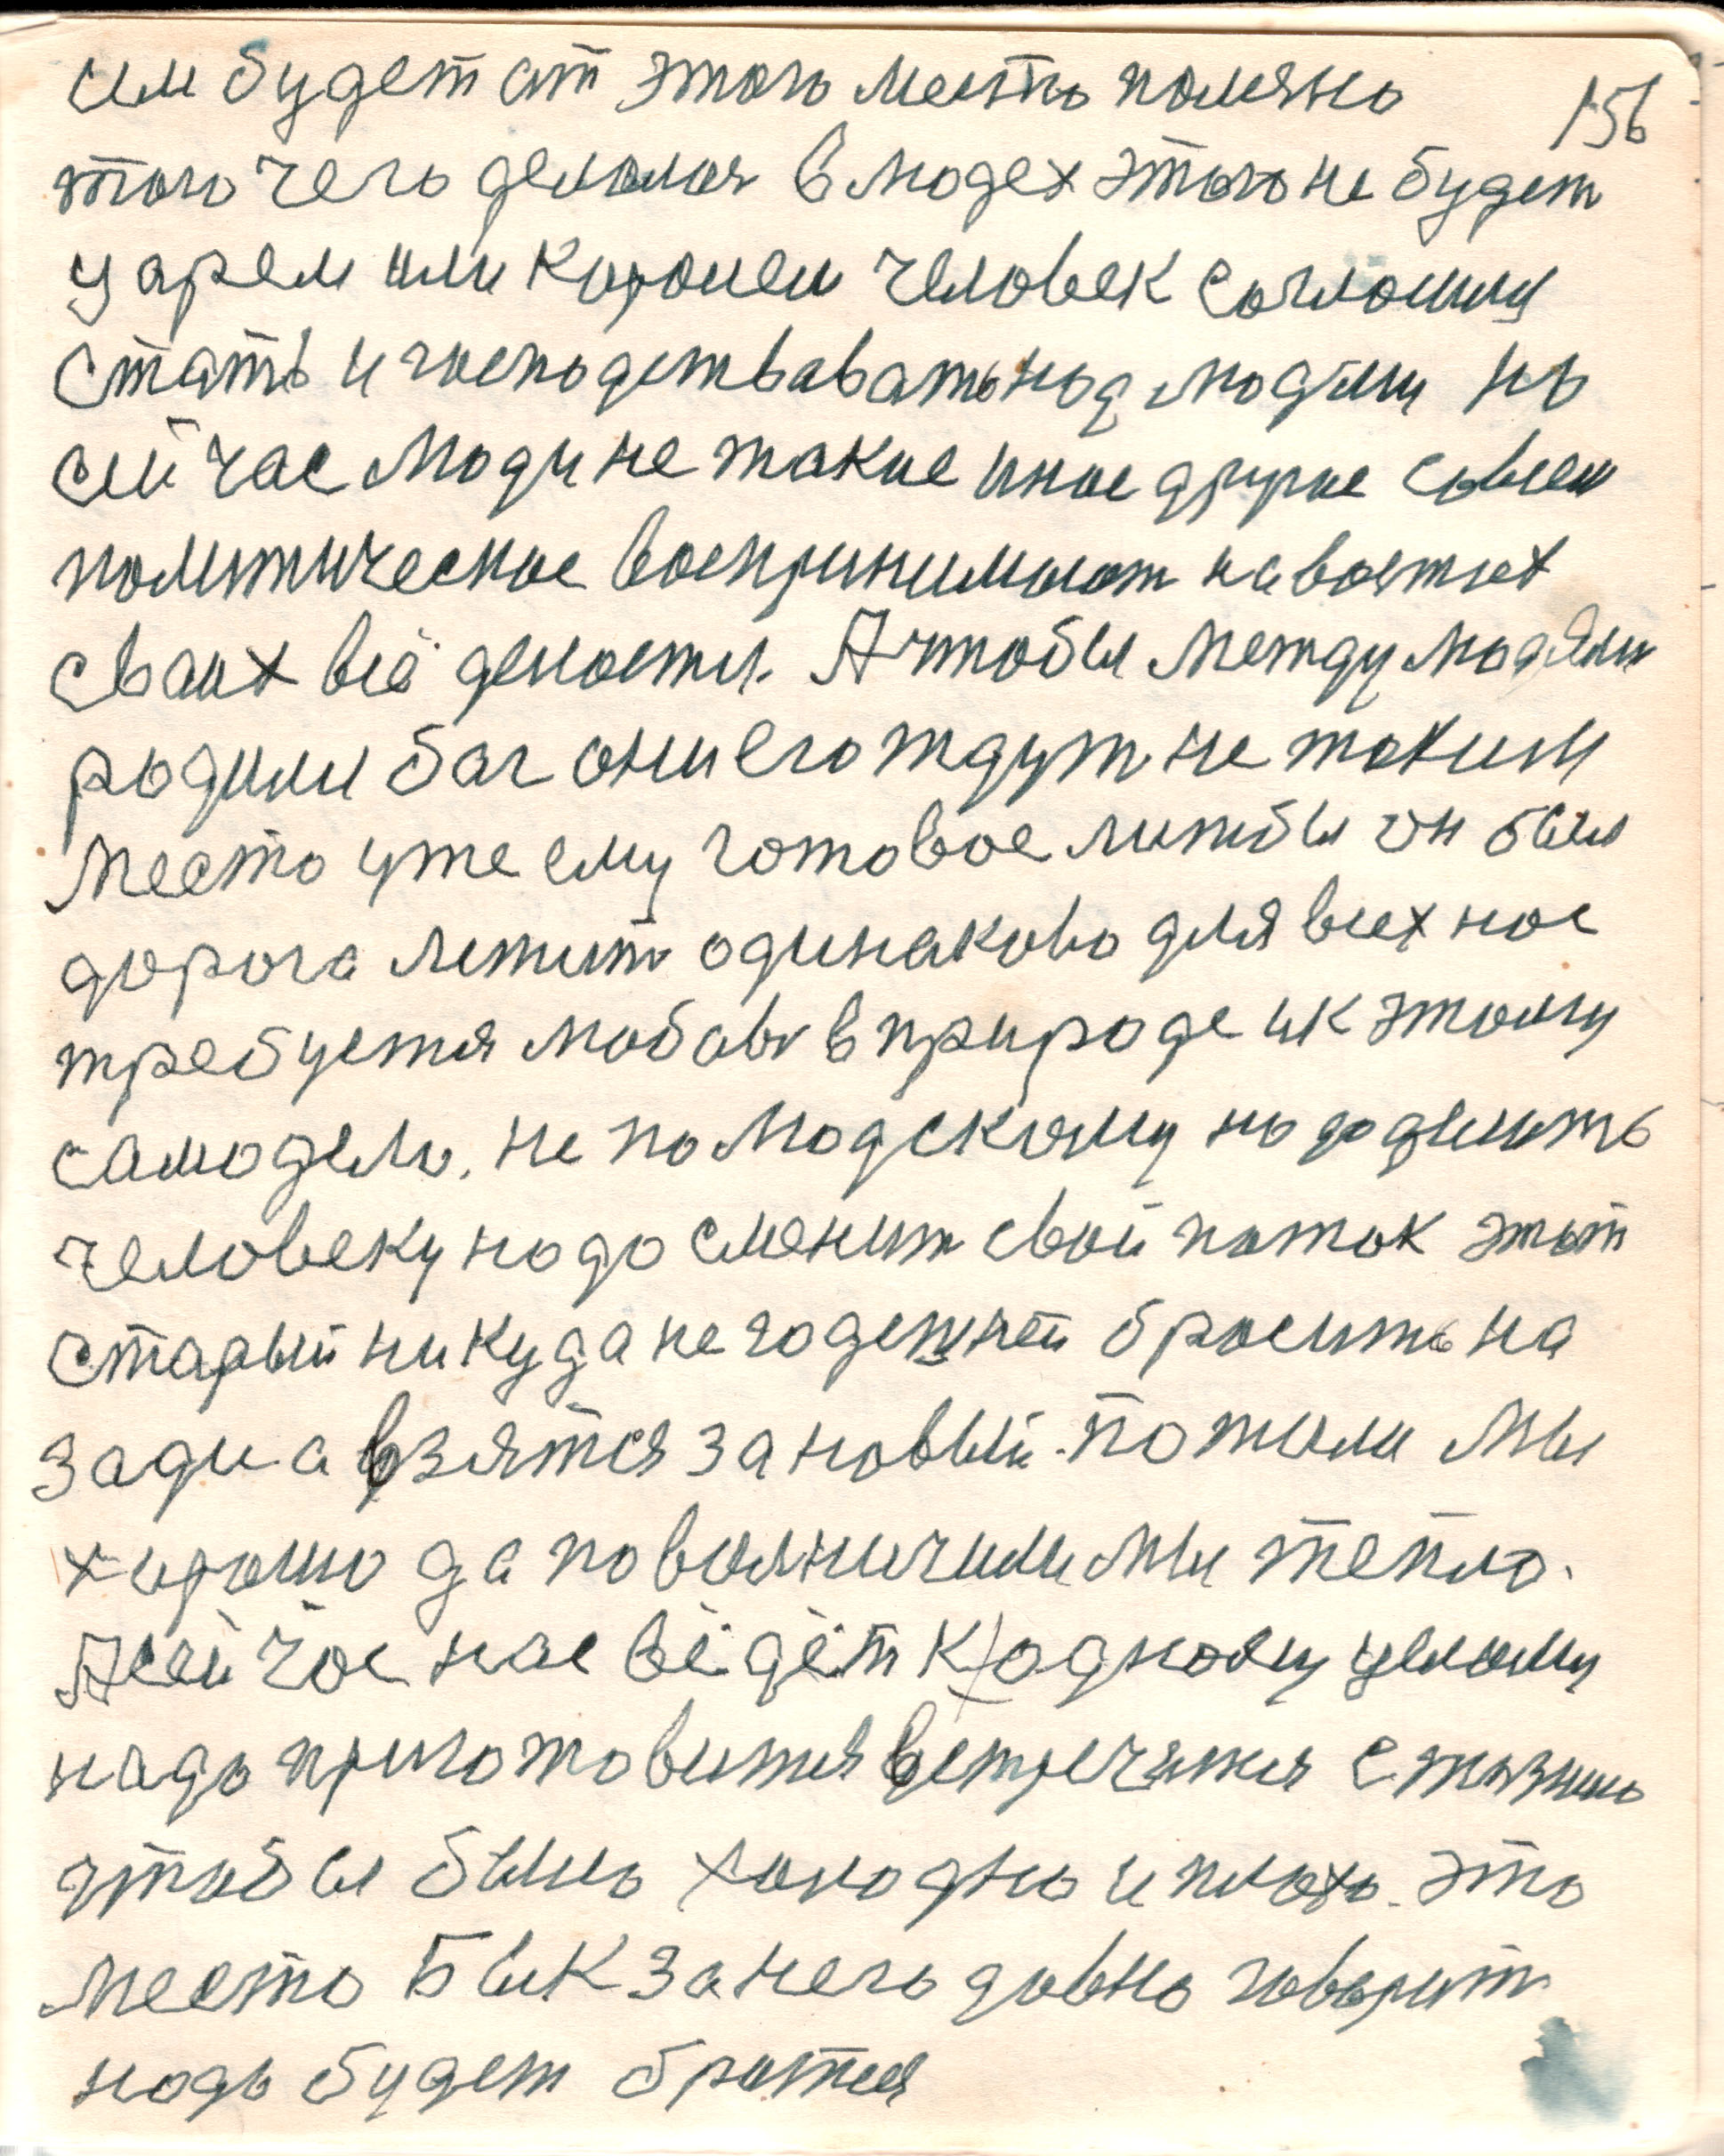 им будет от этого место полячо
156
того чего делалося в людех этого не будет
царем или королем человек согласииц
стать и господствавать над людями но
сийчас люди не такие иное другие совсем
политическое воспринимают на востиех
своих всё дености. А чтобы между людями
родили бог они его ждут не таким
место уже ему готовое лижбы он был
дорога лежит одинаково для всех нас
требуется любовь в природе и к этому
самодело. не по людскому надо жить
человеку надо сменит свой поток этот
старый никуда негодежней бросить на
зади а взятся за новый. пожили мы
хорошо да повольничили мы тепло.
А сейчас нас ведёт к одному целому
надо приготовится встречятся с жызнию
чтобы было холодно и плохо. это
место Бык за него давно говорит
надо будет братся